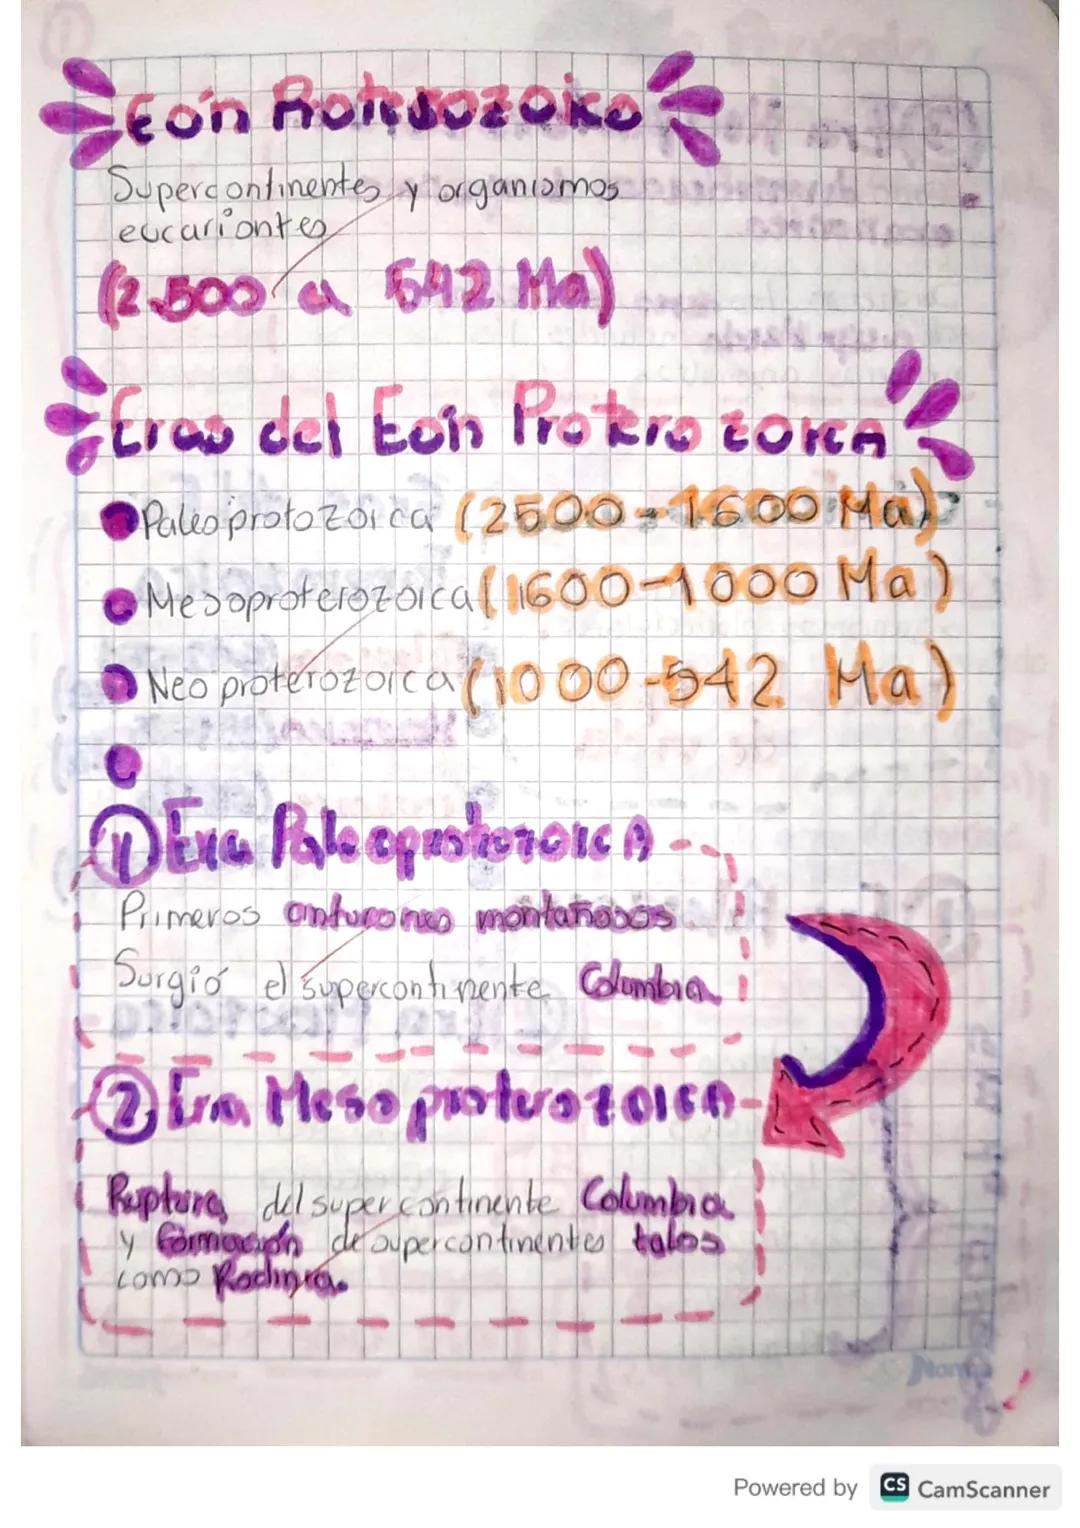 Eón Proterozoico
Supercontinentes y organismos
eucariontes
(2.500 a 542 Ma)
Eras del Eón Proterozoica
Paleoprotozoica (2500-1600 Ma)
Mesoproterozoica (1600-1000 Ma)
Neoproterozoica (1000-542 Ma)
1) Era Paleoproterozoica
Primeros cinturones montañosos
Surgió el supercontinente Columbia
2) Era Mesoproterozoica
Ruptura del supercontinente Columbia
y formación de supercontinentes tales
como Rodinia.
Powered by CS CamScanner